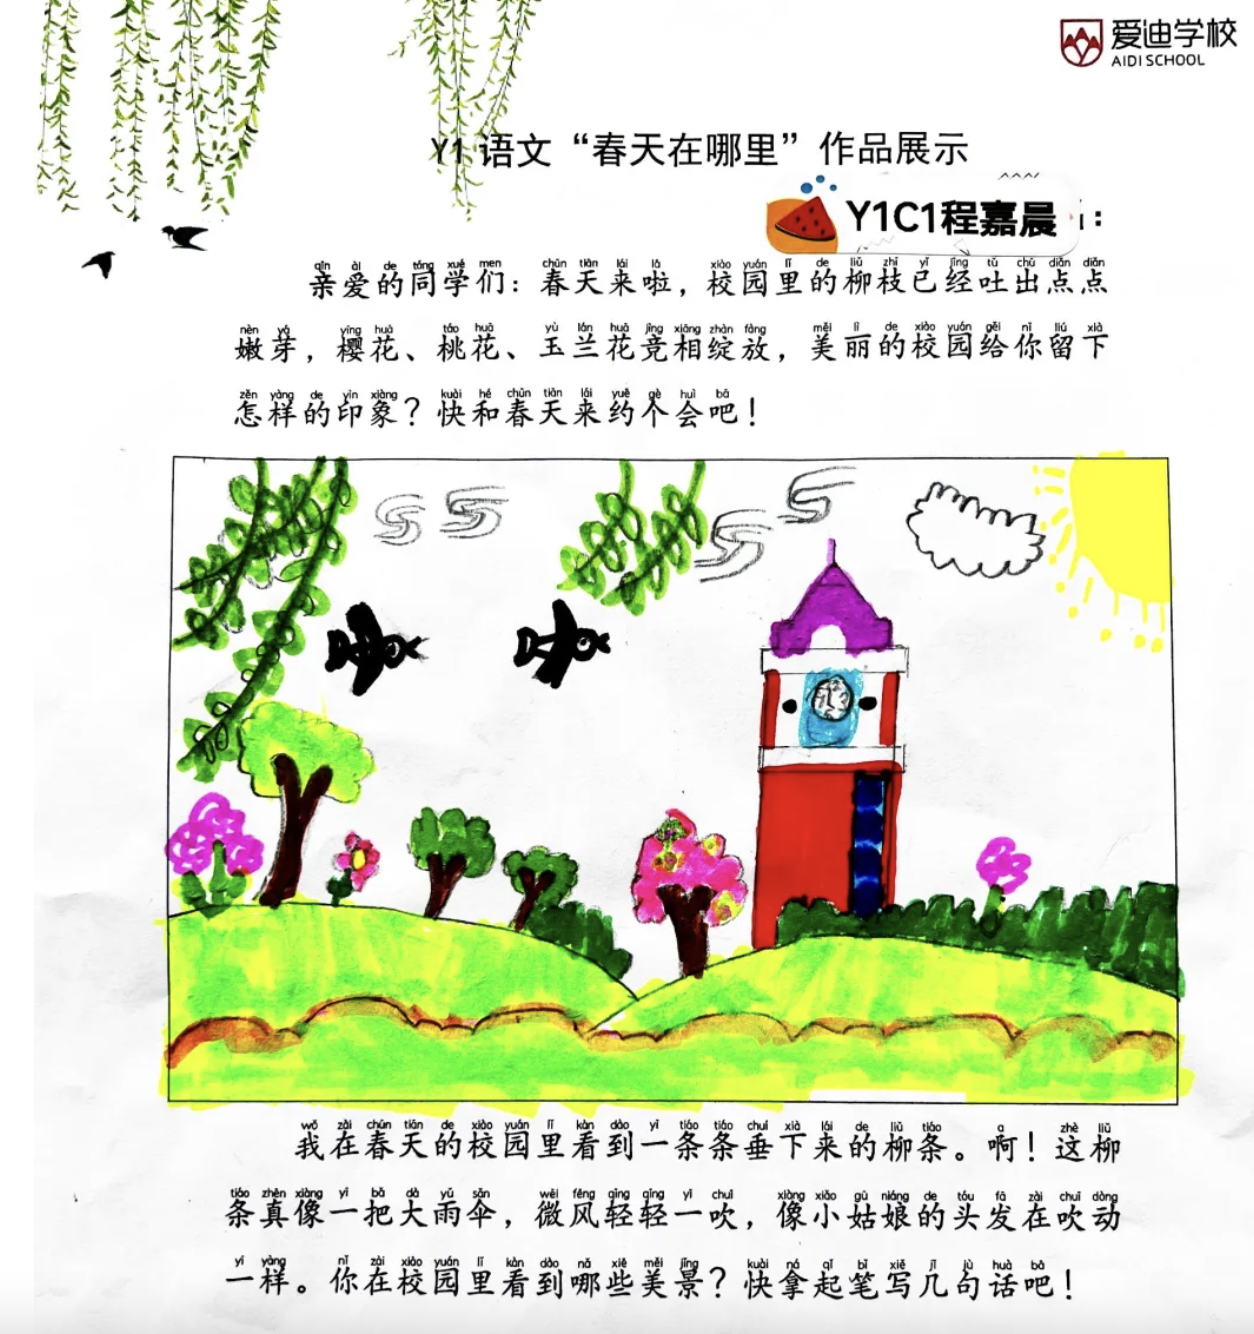 爱迪学校
AIDI SCHOOL
Y1 语文“春天在哪里”作品展示
Y1C1程嘉晨：
qīn ài de tóng xué men chūn tiān lái lā xiào yuán lǐ de liǔ zhī yǐ jīng tǔ chū diǎn diǎn
亲爱的同学们：春天来啦，校园里的柳枝已经吐出点点
nèn yá yīng huā táo huā yù lán huā jìng xiāng zhàn fàng měi lì de xiào yuán gěi nǐ liú xià
嫩芽，樱花、桃花、玉兰花竞相绽放，美丽的校园给你留下
zěn yàng de yìn xiàng kuài hé chūn tiān lái yuē gè huì bā
怎样的印象？快和春天来约个会吧！
wǒ zài chūn tiān de xiào yuán lǐ kàn dào yì tiáo tiáo chuí xià lái de liǔ tiáo a zhè liǔ
我在春天的校园里看到一条条垂下来的柳条。啊！这柳
tiáo zhēn xiàng yì bǎ dà yǔ sǎn wēi fēng qīng qīng yì chuī xiàng xiǎo gū niáng de tóu fà zài chuī dòng
条真像一把大雨伞，微风轻轻一吹，像小姑娘的头发在吹动
yí yàng nǐ zài xiào yuán lǐ kàn dào nǎ xiē měi jǐng kuài ná qǐ bǐ xiě jǐ jù huà bā
一样。你在校园里看到哪些美景？快拿起笔写几句话吧！